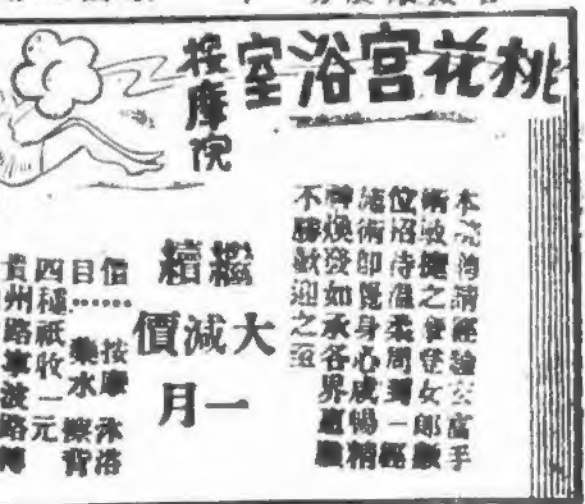 桃花宮浴室
按摩院
本院聘請經驗宏富手
術敏捷之摩登女郎數
位招待溫柔周到一經
施術即覺身心成暢精
神煥發如承各界惠顧
不勝歡迎之至
繼續
大減價
一月
價目……按摩 沐浴
藥水 擦背
四種祇收一元
貴州路寧波路